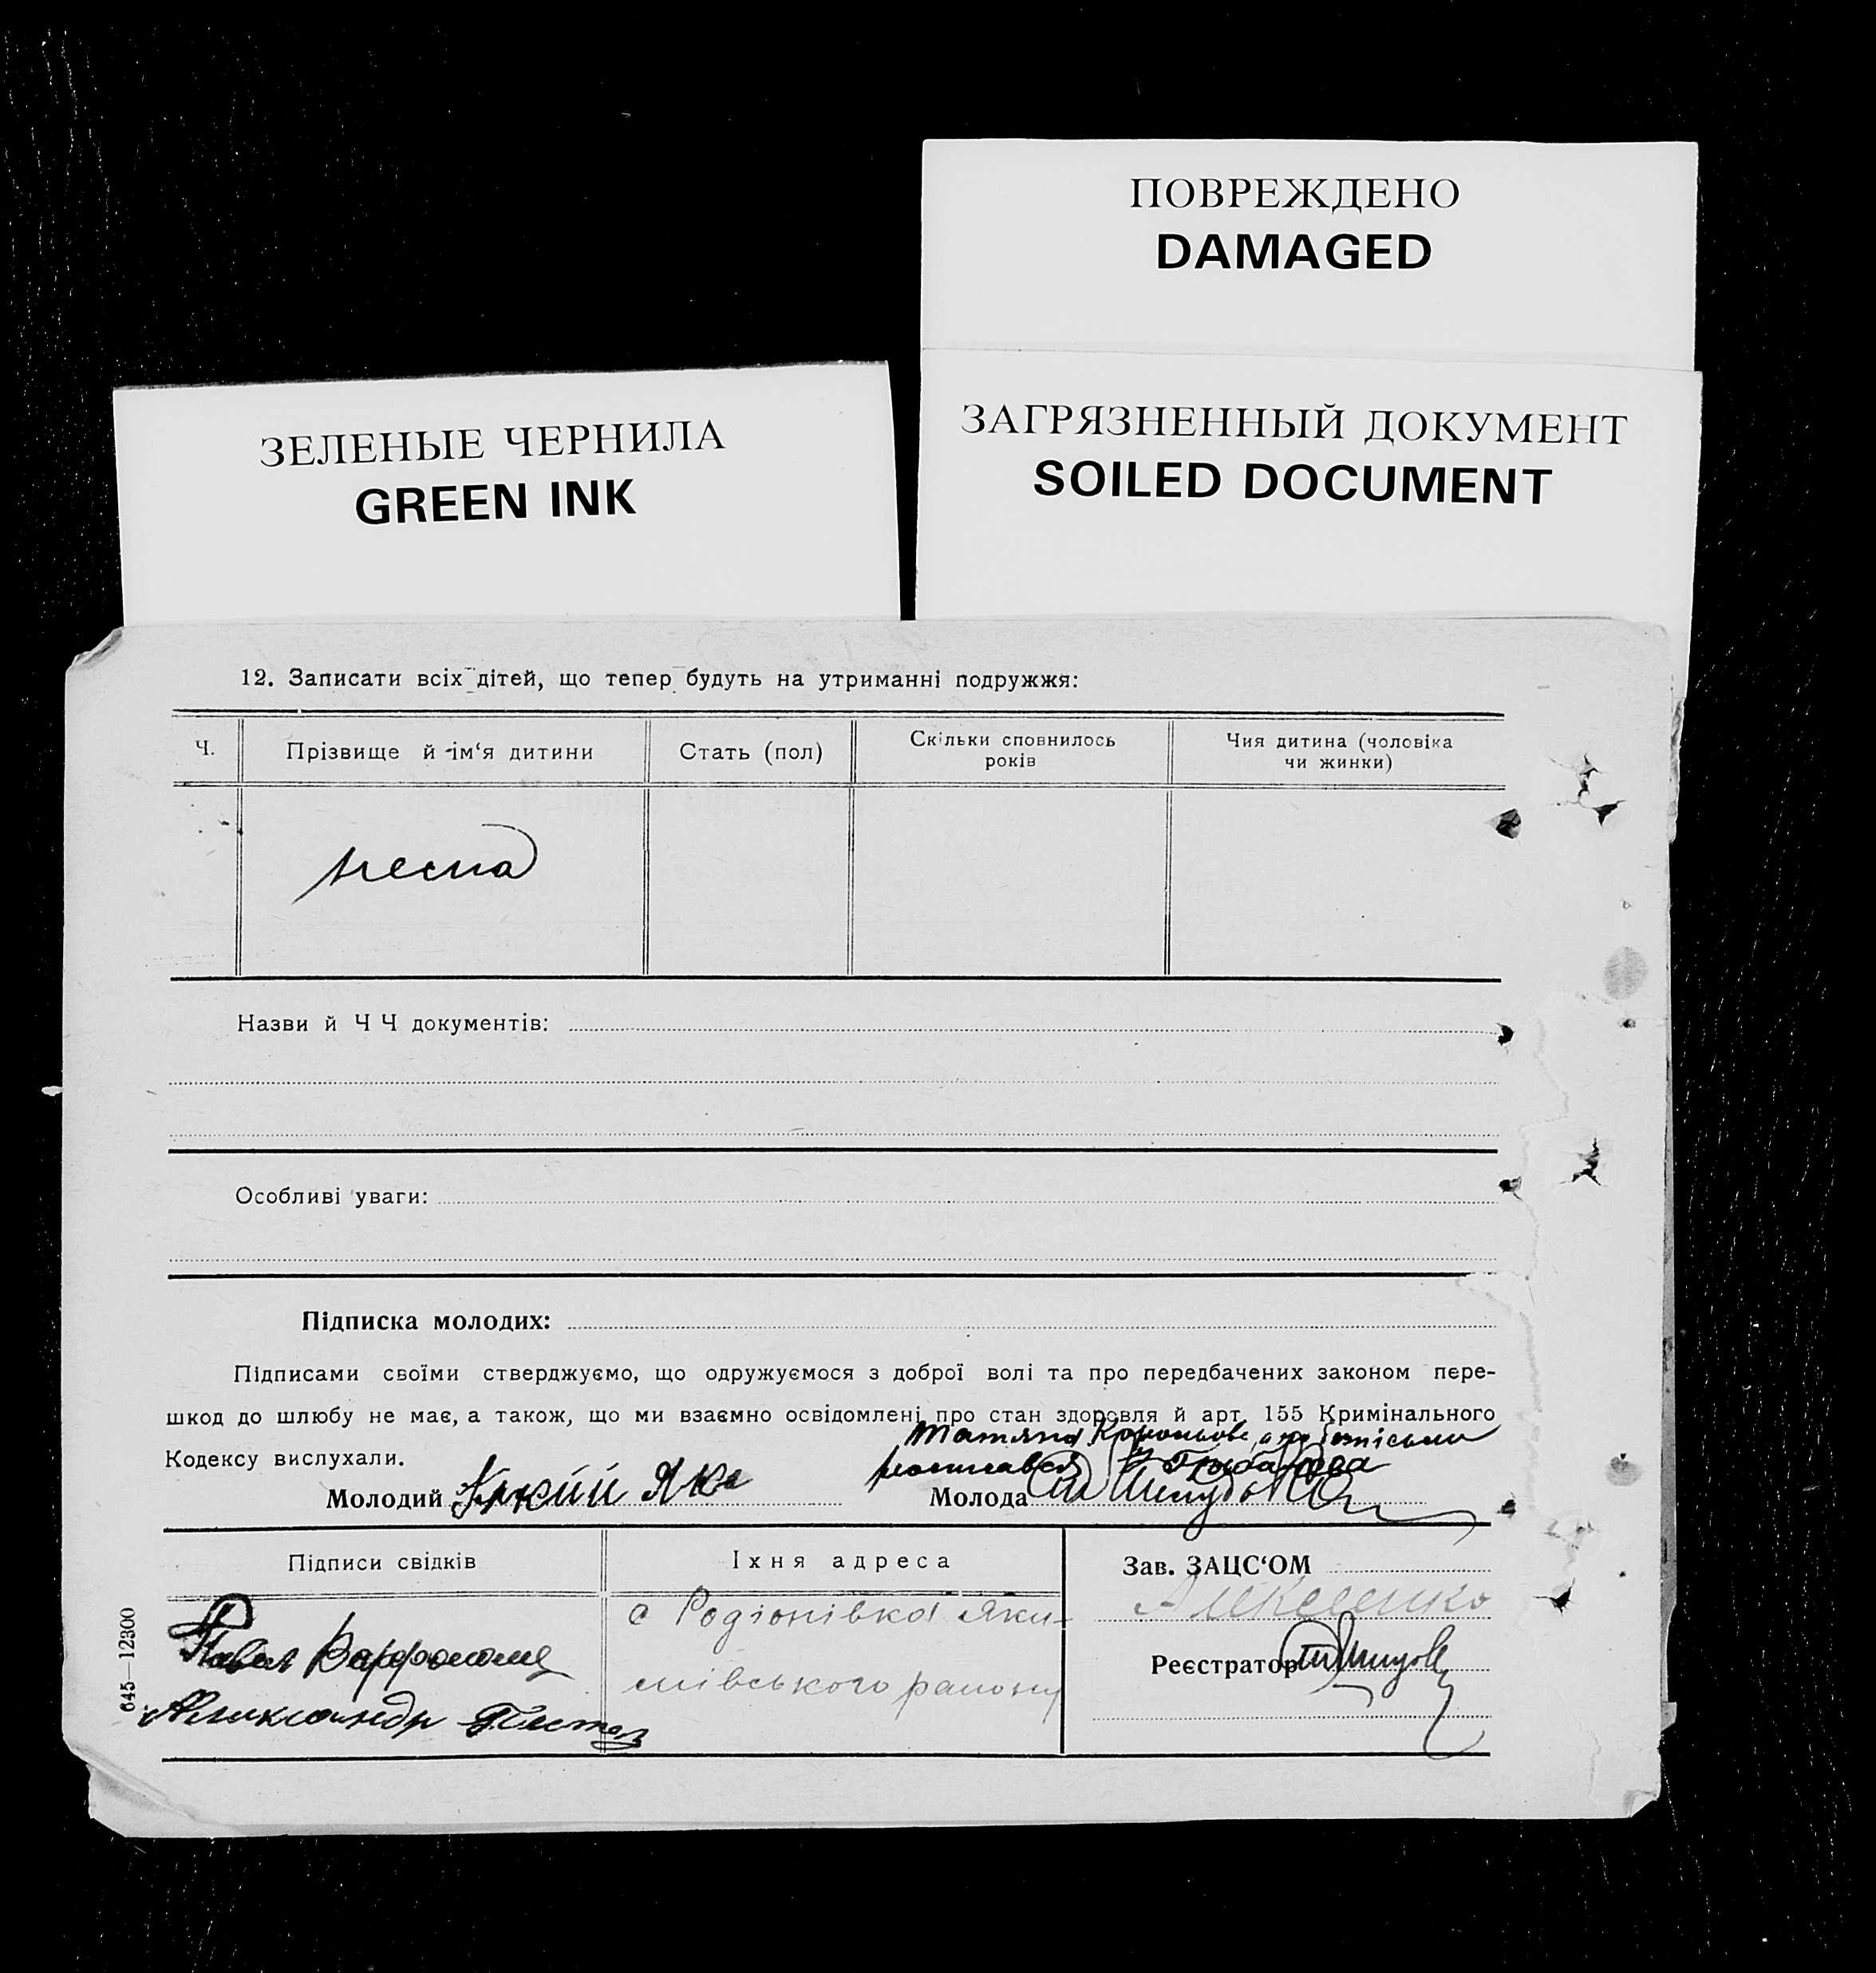 ПОВРЕЖДЕНО
DAMAGED
ЗАГРЯЗНЕННЫЙ ДОКУМЕНТ
SOILED DOCUMENT
ЗЕЛЕНЫЕ ЧЕРНИЛА
GREEN INK
12. Записати всіх дітей, що тепер будуть на утриманні подружжя:
Ч.
Прізвище й ім‘я дитини
Стать (пол)
Скільки сповнилось
років
Чия дитина (чоловіка
чи жинки)
Назви й Ч Ч документів:
Особливі уваги:
Підписка молодих:
Підписами своїми стверджуємо, що одружуємося з доброї волі та про передбачених законом пере-
шкод до шлюбу не має, а також, що ми взаємно освідомлені про стан здоровля й арт. 155 Кримінального
Кодексу вислухали.
Татяна
Молодий
Молода
Підписи свідків
Їхня адреса
Зав. ЗАЦС‘ОМ
с Родіонівка Яки-
мівського району
Алексеенко
Реєстратор
Павел
Александр
645—12300